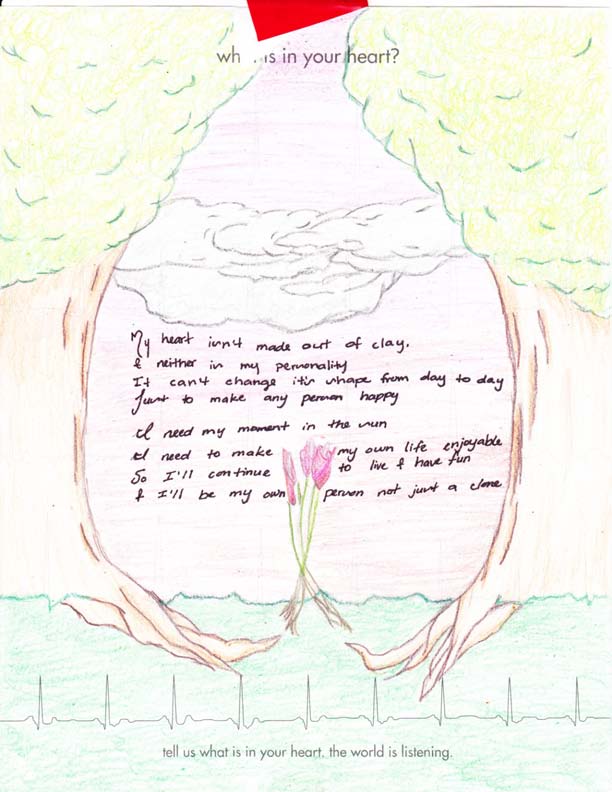 wh is in your heart?
My heart isn't made out of clay,
& neither is my personality
It can't change it's shape from day to day
Just to make any person happy
I need my moment in the sun
I need to make my own life enjoyable
So I'll continue to live & have fun
& I'll be my own person not just a clone
tell us what is in your heart. the world is listening.